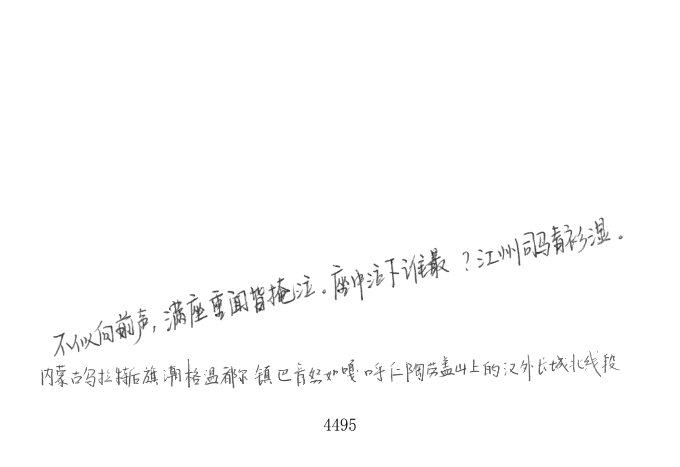 不似向前声，满座重闻皆掩泣。座中泣下谁最？江州司马青衫湿。
内蒙古乌拉特后旗潮格温都尔镇巴音努如嘎查呼仁陶勒盖山上的汉外长城北线段
4495